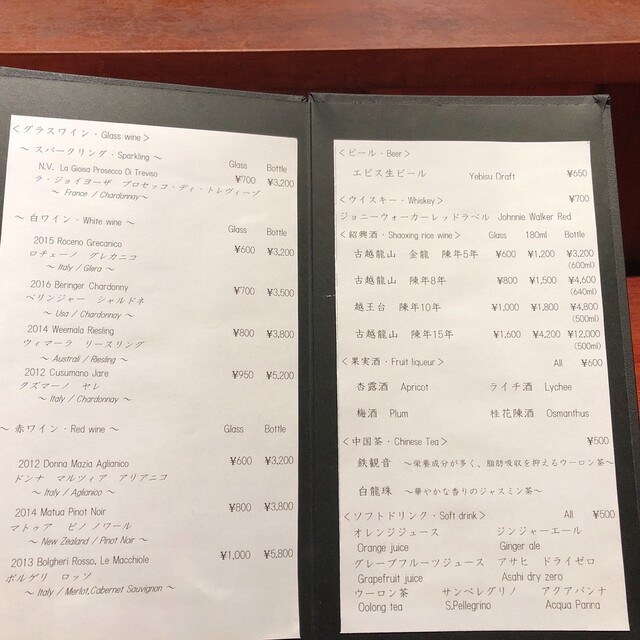 <グラスワイン・Glass wine>
~ スパークリング・Sparkling ~ Glass Bottle
N.V. La Gioisa Prosecco Di Treviso ¥700 ¥3,200
ラ・ジョイヨーザ プロセッコ・ディ・トレヴィーゾ
~ France / Chardonnay~
~ 白ワイン・White wine ~ Glass Bottle
2015 Roceno Grecanico ¥600 ¥3,200
ロチェーノ グレカニコ
~ Italy / Glera ~
2016 Beringer Chardonny ¥700 ¥3,500
ベリンジャー シャルドネ
~ Usa / Chardonnay ~
2014 Weemala Riesling ¥800 ¥3,800
ウィマーラ リースリング
~ Australi / Riesling ~
2012 Cusumano Jare ¥950 ¥5,200
クズマーノ ヤレ
~ Italy / Chardonnay ~
~ 赤ワイン・Red wine ~ Glass Bottle
2012 Donna Mazia Aglianico ¥600 ¥3,200
ドンナ マルツィア アリアニコ
~ Italy / Aglianico ~
2014 Matua Pinot Noir ¥800 ¥3,800
マトゥア ピノ ノワール
~ New Zealand / Pinot Noir ~
2013 Bolgheri Rosso, Le Macchiole ¥1,000 ¥5,800
ボルゲリ ロッソ
~ Italy / Merlot,Cabernet Sauvignon ~
<ビール・Beer>
エビス生ビール Yebisu Draft ¥650
<ウイスキー・Whiskey> ¥700
ジョニーウォーカーレッドラベル Johnnie Walker Red
<紹興酒・Shaoxing rice wine> Glass 180ml Bottle
古越龍山 金龍 陳年5年 ¥600 ¥1,200 ¥3,200
(600ml)
古越龍山 陳年8年 ¥800 ¥1,500 ¥4,600
(640ml)
越王台 陳年10年 ¥1,000 ¥1,800 ¥4,800
(500ml)
古越龍山 陳年15年 ¥1,600 ¥4,200 ¥12,000
(500ml)
<果実酒・Fruit liqueur> All ¥600
杏露酒 Apricot ライチ酒 Lychee
梅酒 Plum 桂花陳酒 Osmanthus
<中国茶・Chinese Tea> ¥500
鉄観音 ~栄養成分が多く、脂肪吸収を抑えるウーロン茶~
白龍珠 ~華やかな香りのジャスミン茶~
<ソフトドリンク・Soft drink> All ¥500
オレンジジュース ジンジャーエール
Orange juice Ginger ale
グレープフルーツジュース アサヒ ドライゼロ
Grapefruit juice Asahi dry zero
ウーロン茶 サンペレグリノ アクアパンナ
Oolong tea S.Pellegrino Acqua Panna